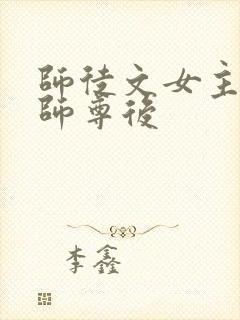 師徒文女主
師尊後
李鑫